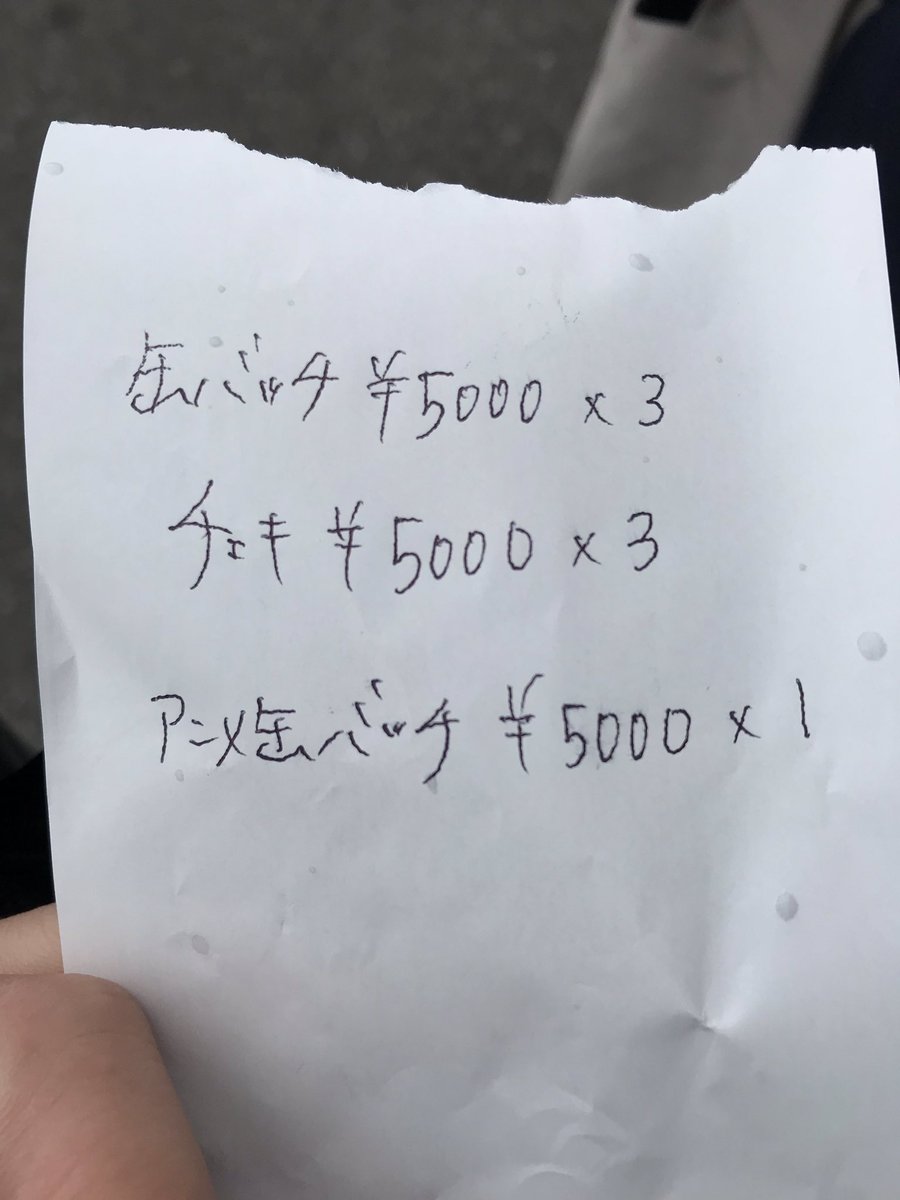 缶バッチ ¥5000 × 3
チェキ ¥5000 × 3
アニメ缶バッチ ¥5000 × 1